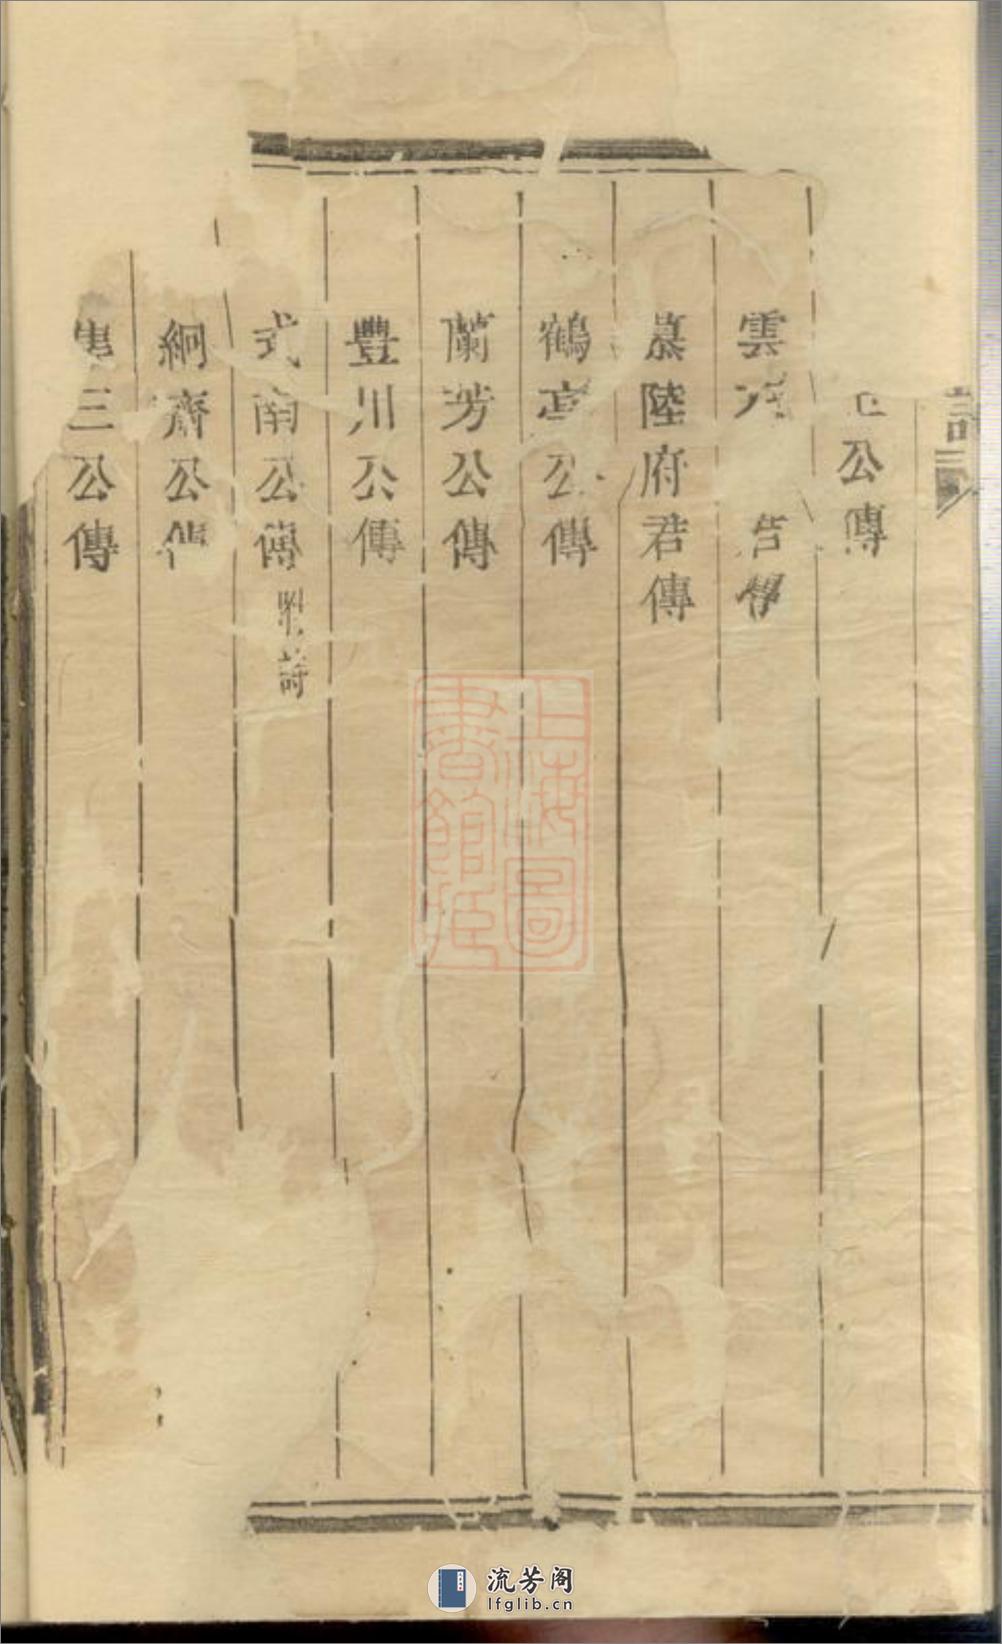 公傳
雲
慕陸府君傳
鶴亭公傳
蘭芳公傳
豐川公傳
式南公傳附詩
絅齋公傳
三公傳
上海圖書館藏
流芳阁
lfglib.cn